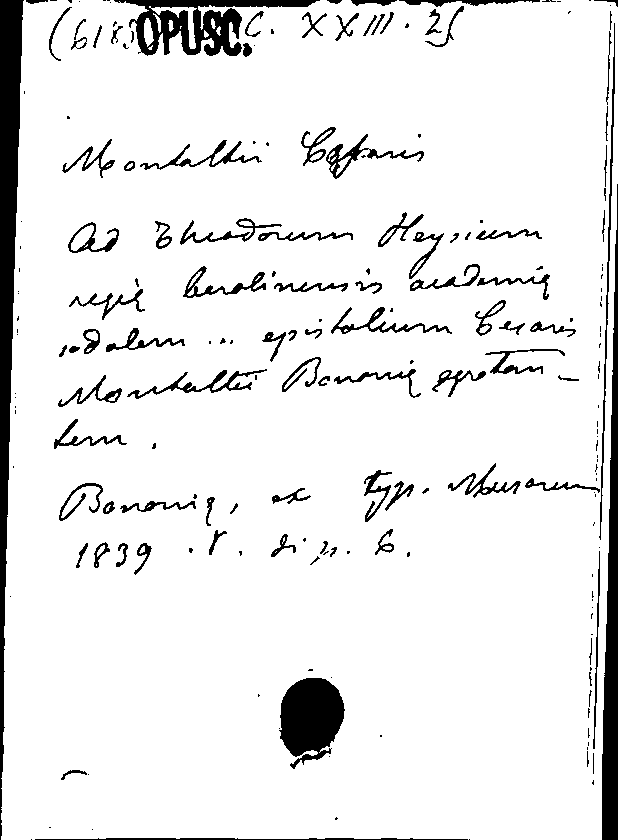 (6183 OPUSC. C. XXIII. 25
Montaltii Cęsaris
Ad Theodorum Heysium
regię berolinensis academię
sodalem ... epistolium Cesaris
Montaltii Bononię egrotan-
tem.
Bononię, ex typ. Musarum
1839. 8. di p. 6.